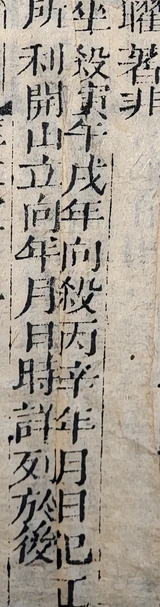 曜著非
坐殺寅午戌年向殺丙辛年月日犯正
所利開山立向年月日時詳列於後